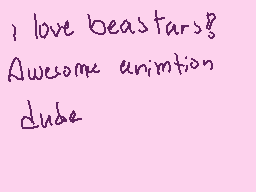 i love beastars!
Awesome animtion
dude